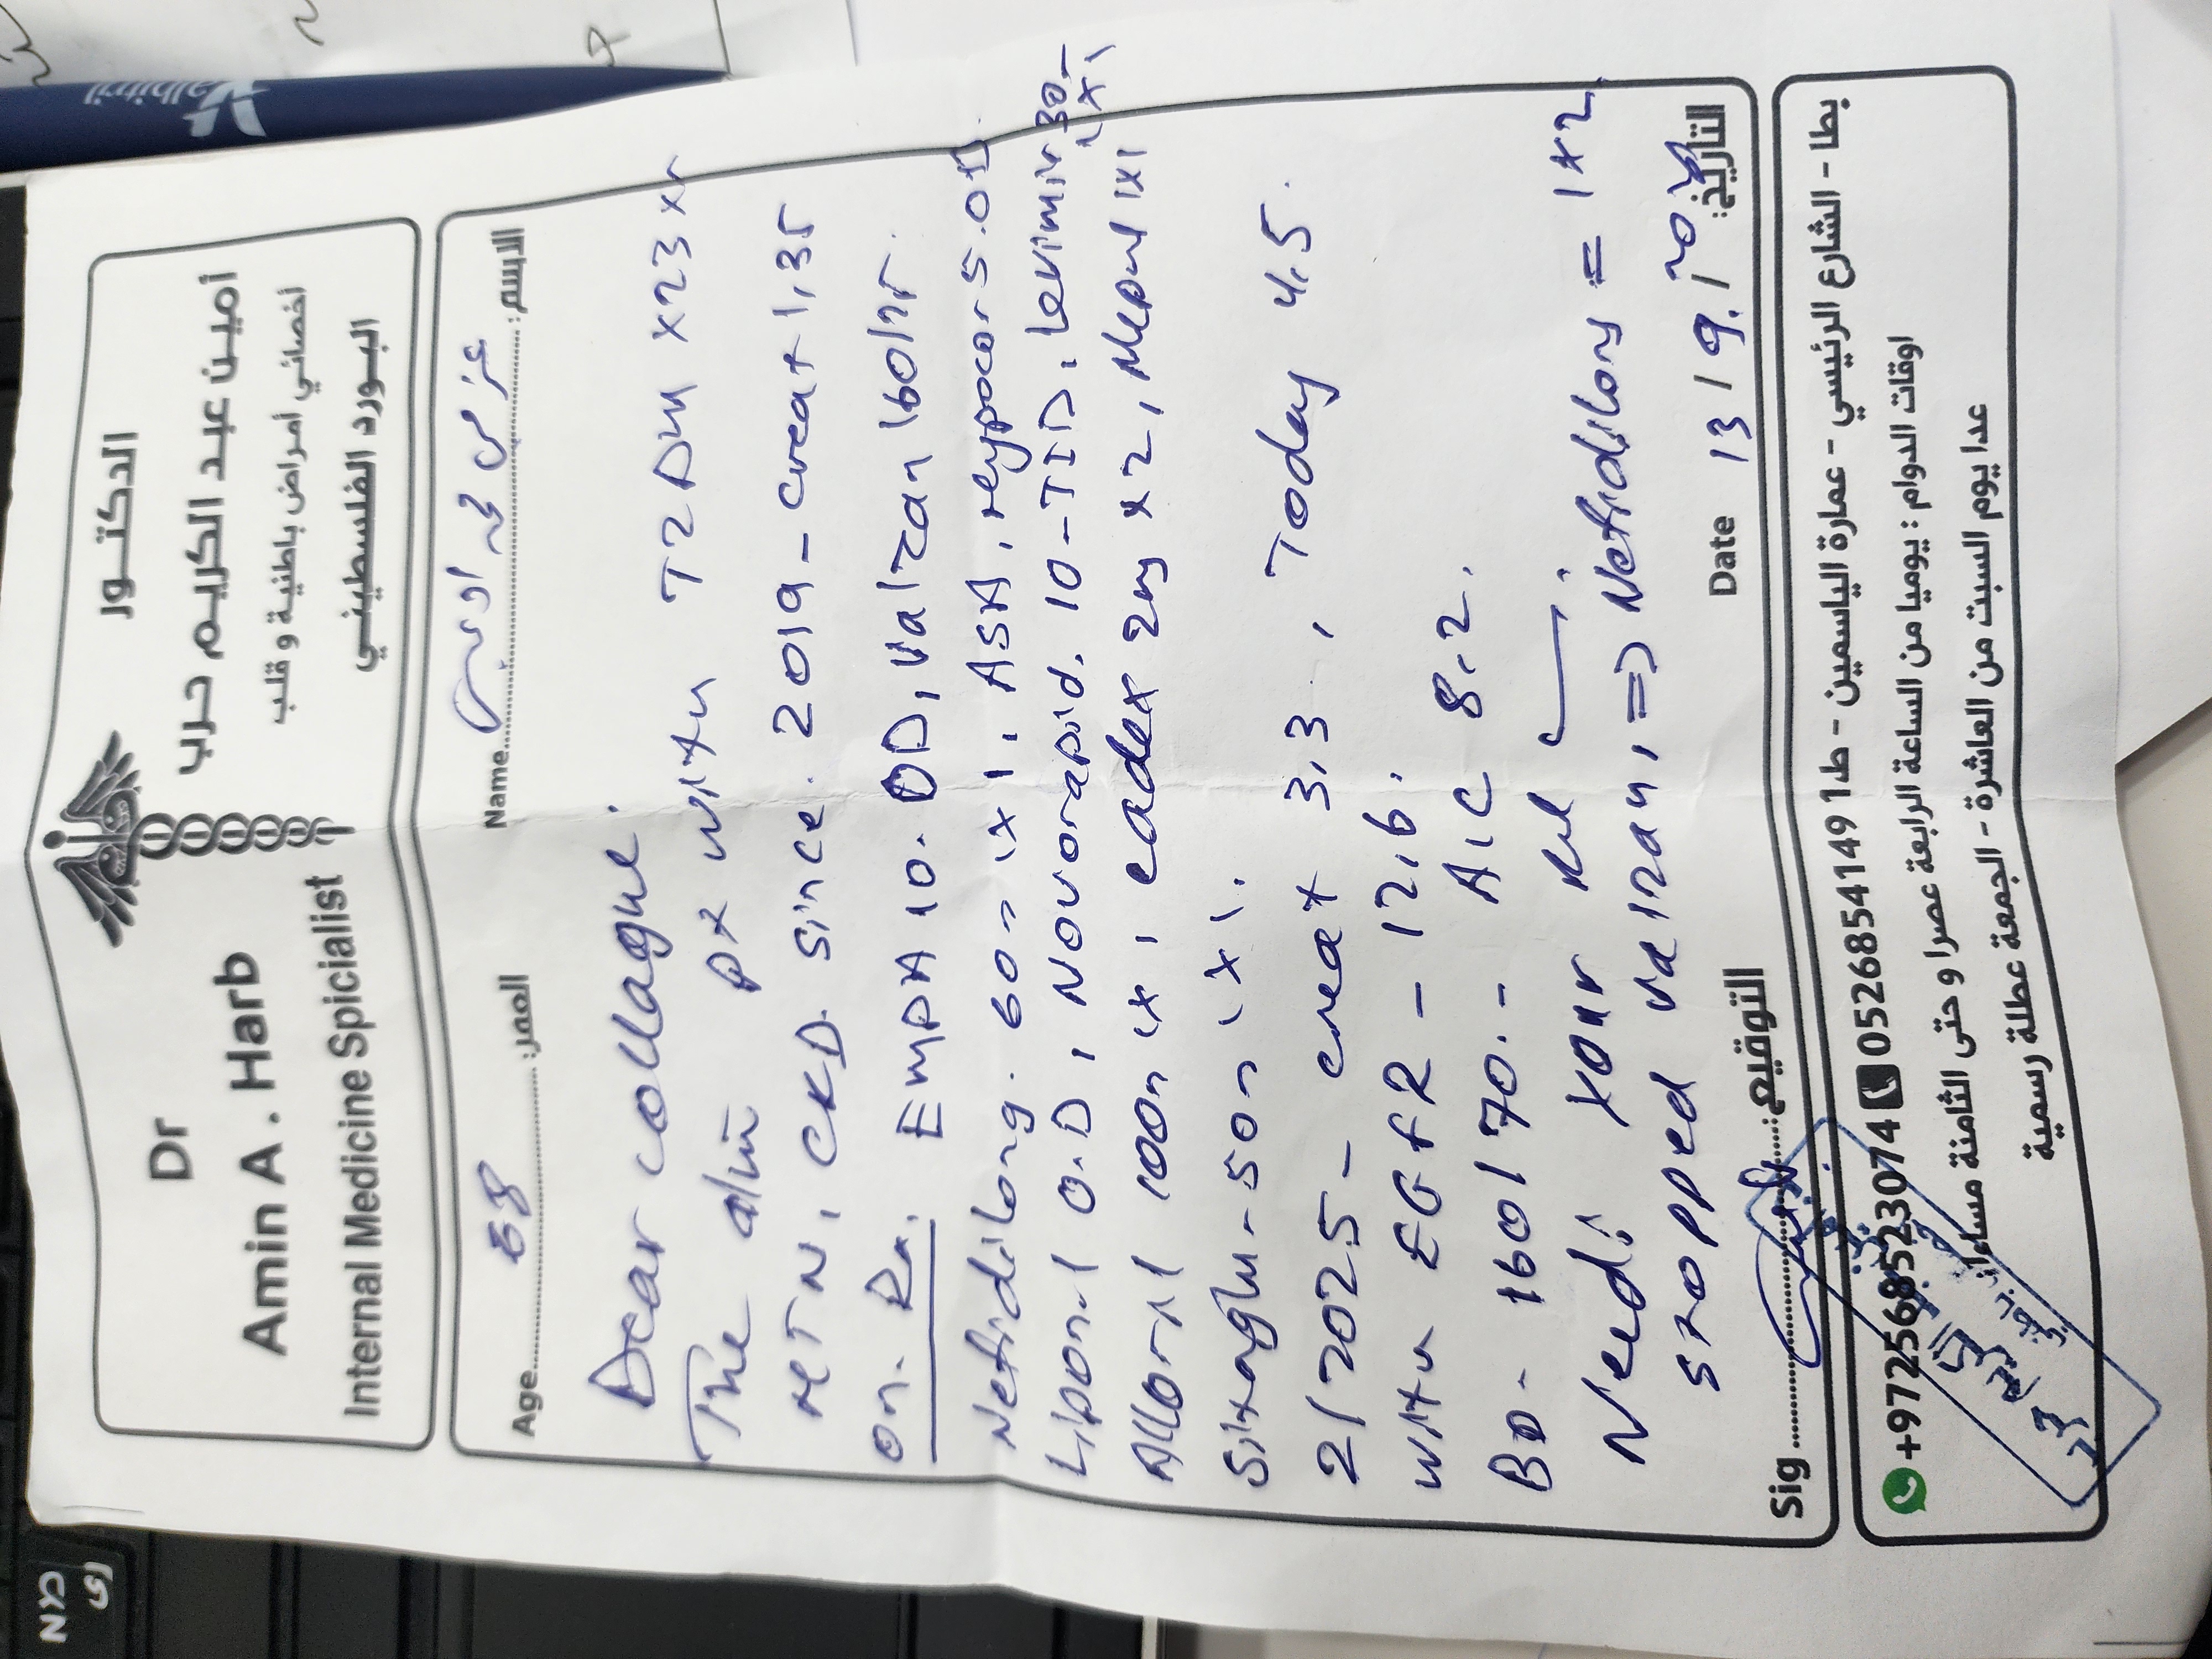 الدكتور
أمين عبد الكريم حرب
أخصائي أمراض باطنية و قلب
البورد الفلسطيني
Dr
Amin A . Harb
Internal Medicine Spicialist
Age 68 العمر:
Name عزمي محمد :الاسم
Dear collague:
The abm pt with T2DM x23 yr
HTN, CKD since 2019 - creat 1,35
on. Rx. EMPA 10. OD, valzan 160/25.
Nefidilong. 60 1x1, ASA, Hypocor 5. OD.
Liponil O.D, Novorapid. 10 - TID, Levimir 30 - 1x1
Alloril 100 1x1, cadex 2mg x2, Mepril 1x1
Sitaglu - 50 1x1.
2/2025 - creat 3,3, Today 4.5.
with EGFR - 12,6.
BP - 160/70. - A1C 8.2.
Need your
stopped valzan, => Nefidilong = 1x2
Sig التوقيع:
Date 13/9/ التاريخ:
بطا - الشارع الرئيسي - عمارة الياسمين - ط1
+972568523074 0526854149
اوقات الدوام : يوميا من الساعة الرابعة عصرا و حتى الثامنة مساءا
عدا يوم السبت من العاشرة - الجمعة عطلة رسمية
CAN